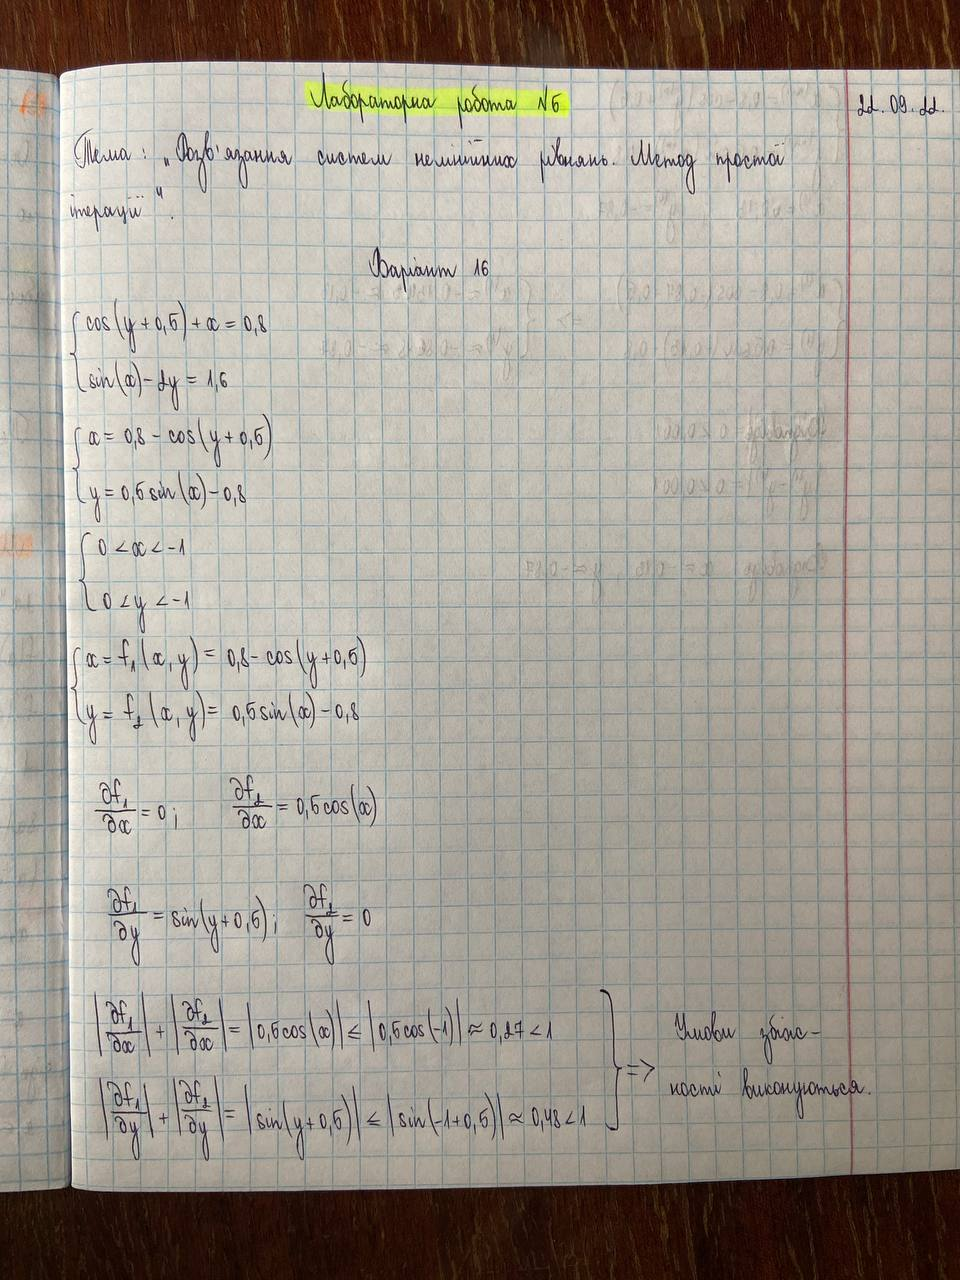 Лабораторна робота №6
22.09.22.
Тема: „Розв'язання систем нелінійних рівнянь. Метод простої
ітерації".
Варіант 16
cos(y+0,5)+x=0,8
sin(x)-2y=1,6
x=0,8-cos(y+0,5)
y=0,5sin(x)-0,8
0<x<-1
0<y<-1
x=f₁(x,y)=0,8-cos(y+0,5)
y=f₂(x,y)=0,5sin(x)-0,8
∂f₁/∂x=0; ∂f₂/∂x=0,5cos(x)
∂f₁/∂y=sin(y+0,5); ∂f₂/∂y=0
|∂f₁/∂x|+|∂f₂/∂x|=|0,5cos(x)|≤|0,5cos(-1)|≈0,27<1
|∂f₁/∂y|+|∂f₂/∂y|=|sin(y+0,5)|≤|sin(-1+0,5)|≈0,48<1
=> Умови збіж-
ності виконуються.